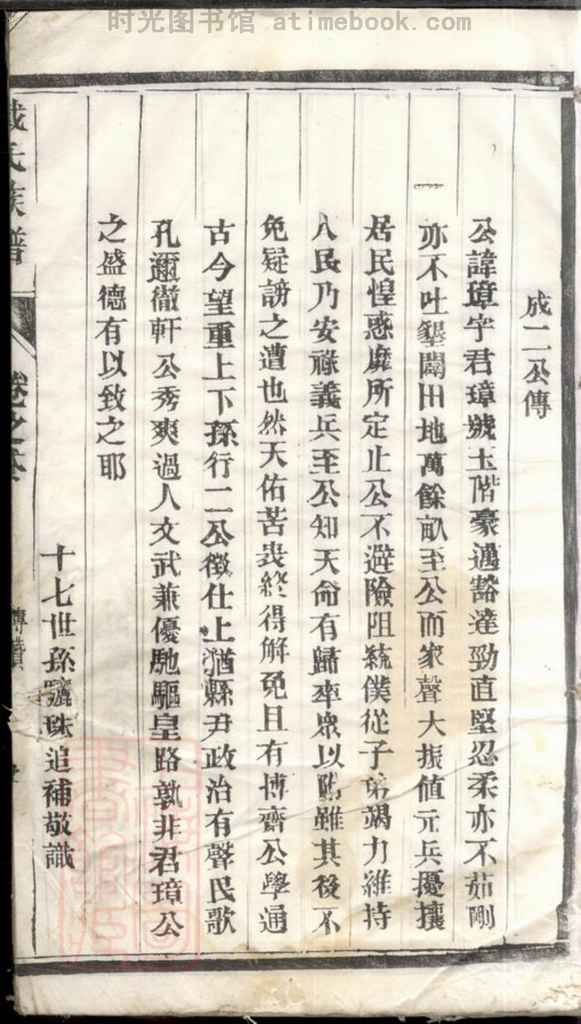 时光图书馆 atimebook.com
成二公傳
公諱璋字君璋號玉階豪邁豁達勁直堅忍柔亦不茹剛
亦不吐墾闢田地萬餘畝至公而家聲大振值元兵擾攘
居民惶惑靡所定止公不避險阻統僕從子弟竭力維持
人民乃安祿義兵至公知天命有歸率眾以随雖其後不
免疑謗之遭也然天佑苦衷終得解免且有博齋公學通
古今望重上下孫行二公徵仕上猶縣尹政治有聲民歌
孔邇徹軒公秀爽過人文武兼優馳驅皇路孰非君璋公
之盛德有以致之耶
十七世孫驪珠追補敬識
氏族譜
卷之
傳贊